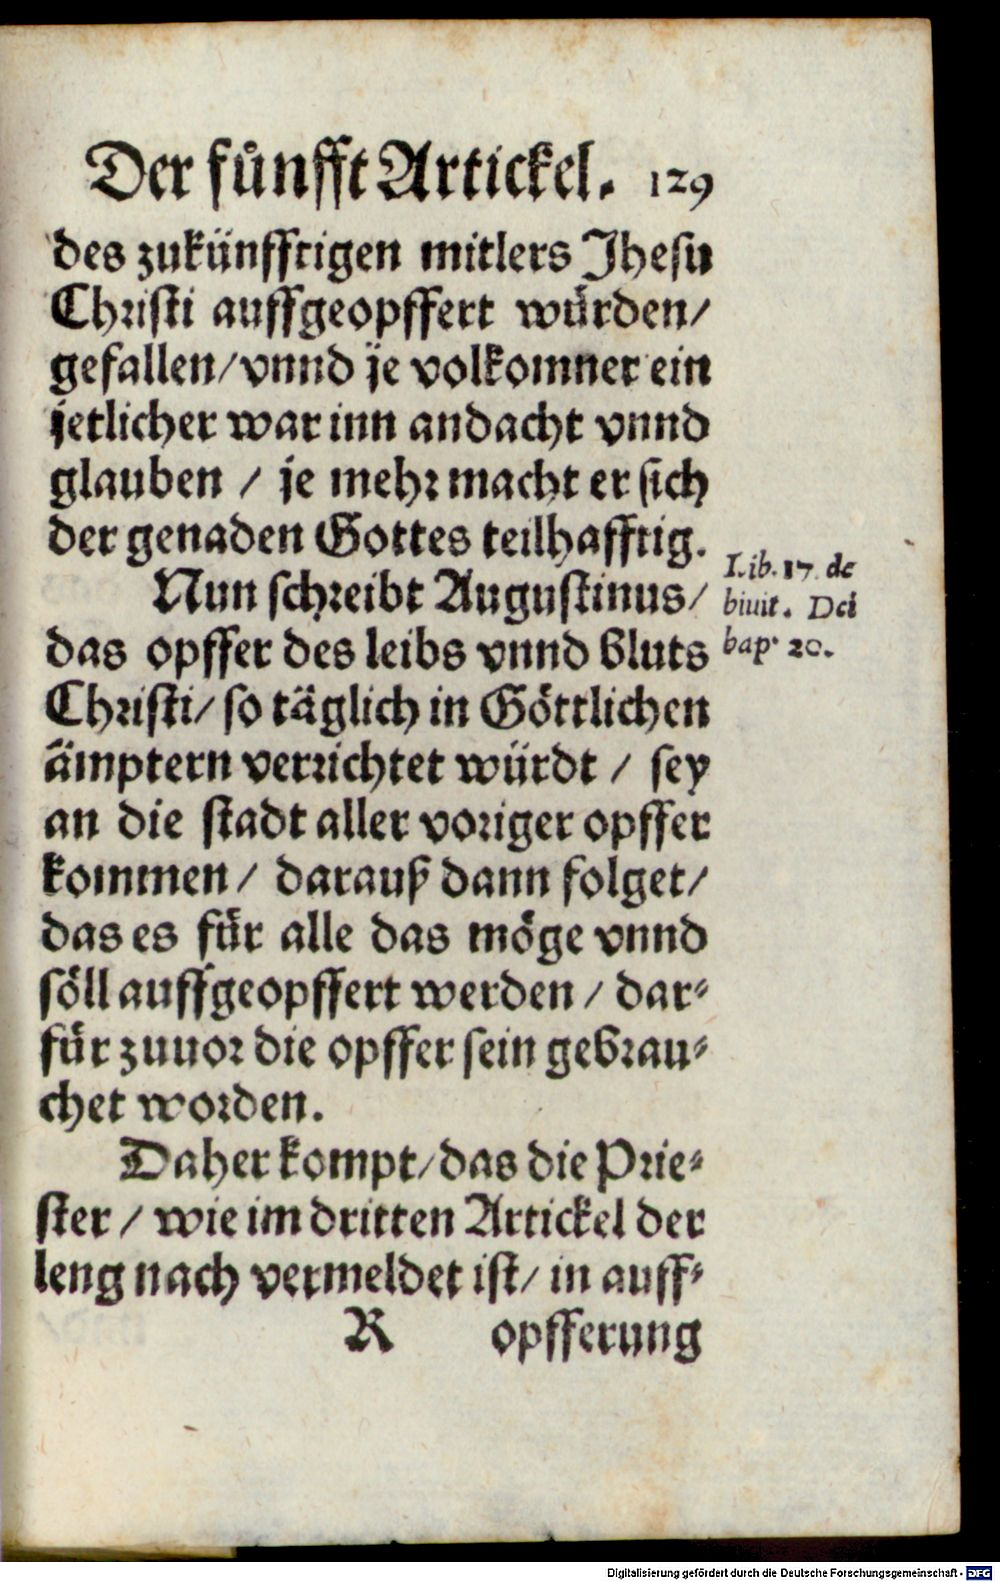 Der fünfft Artickel. 129
des zukünfftigen mitlers Jhesu
Christi auffgeopffert würden/
gefallen/vnnd je volkomner ein
jetlicher war inn andacht vnnd
glauben / je mehr macht er sich
der genaden Gottes teilhafftig.
Nun schreibt Augustinus/
das opffer des leibs vnnd bluts
Christi/ so täglich in Göttlichen
ämptern verrichtet würdt / sey
an die stadt aller voriger opffer
kommen / darauß dann folget/
das es für alle das möge vnnd
söll auffgeopffert werden / dar-
für zuuor die opffer sein gebrau-
chet worden.
Daher kompt/das die Prie-
ster / wie im dritten Artickel der
leng nach vermeldet ist/ in auff-
R opfferung
Lib. 17. de
biuit. Dei
bap. 20.
Digitalisierung gefördert durch die Deutsche Forschungsgemeinschaft - DFG